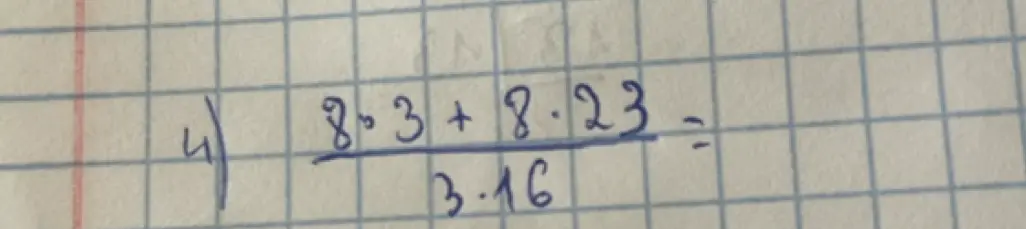 4) 8·3 + 8·23 =
3·16